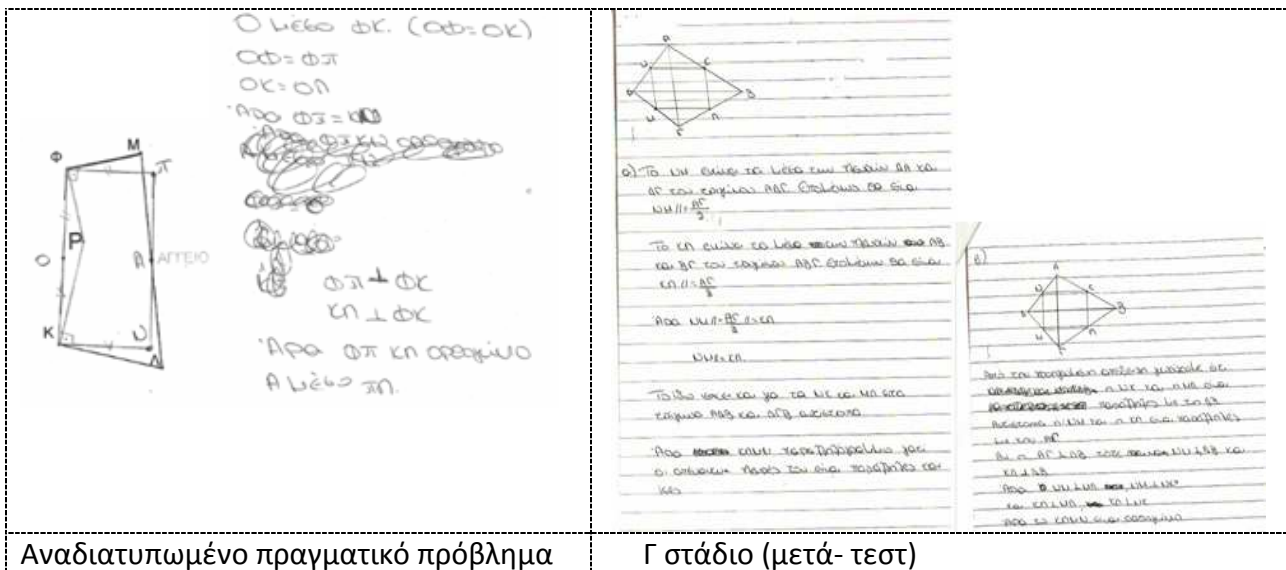 Ο μέσο ΦΚ. (ΟΦ=ΟΚ)
ΟΦ=Φπ
ΟΚ=ΟΛ
Άρα
Φπ ⊥ ΦΚ
ΚΛ ⊥ ΦΚ
Άρα Φπ ΚΛ ορθογώνιο
Α μέσο πΛ.
Φ
Μ
π
Ρ
Ο
Α ΑΓΓΕΙΟ
Κ
Ν
Λ
α) Το ΝΜ ενώνει τα μέσα των πλευρών ΔΑ και
ΔΓ του τριγώνου ΑΔΓ. Επομένως θα είναι
ΝΜ//=ΑΓ/2
Το ΚΛ ενώνει τα μέσα των πλευρών ΑΒ
και ΒΓ του τριγώνου ΑΒΓ. Επομένως θα είναι
ΚΛ//=ΑΓ/2
Άρα ΝΜ//=ΑΓ/2//=ΚΛ
ΝΜ//=ΚΛ
Το ίδιο και για τα ΝΚ και ΜΛ στα
τρίγωνα ΑΔΒ και ΔΓΒ αντίστοιχα
Άρα ΚΛΜΝ παραλληλόγραμμο γιατί
οι απέναντι πλευρές του είναι παράλληλες και
ίσες
β)
Από την προηγούμενη απόδειξη ότι
η ΝΚ και η ΜΛ είναι
παράλληλες με τη ΔΒ
Αντίστοιχα η ΝΜ και η ΚΛ είναι παράλληλες
με την ΑΓ
Αν η ΑΓ⊥ΔΒ τότε ΝΜ⊥ΔΒ και
ΚΛ⊥ΔΒ
Άρα ΝΜ⊥ΜΛ, ΝΜ⊥ΝΚ
και ΚΛ⊥ΜΛ, ΚΛ⊥ΝΚ
Άρα το ΚΛΜΝ είναι ορθογώνιο
Αναδιατυπωμένο πραγματικό πρόβλημα
Γ στάδιο (μετά- τεστ)